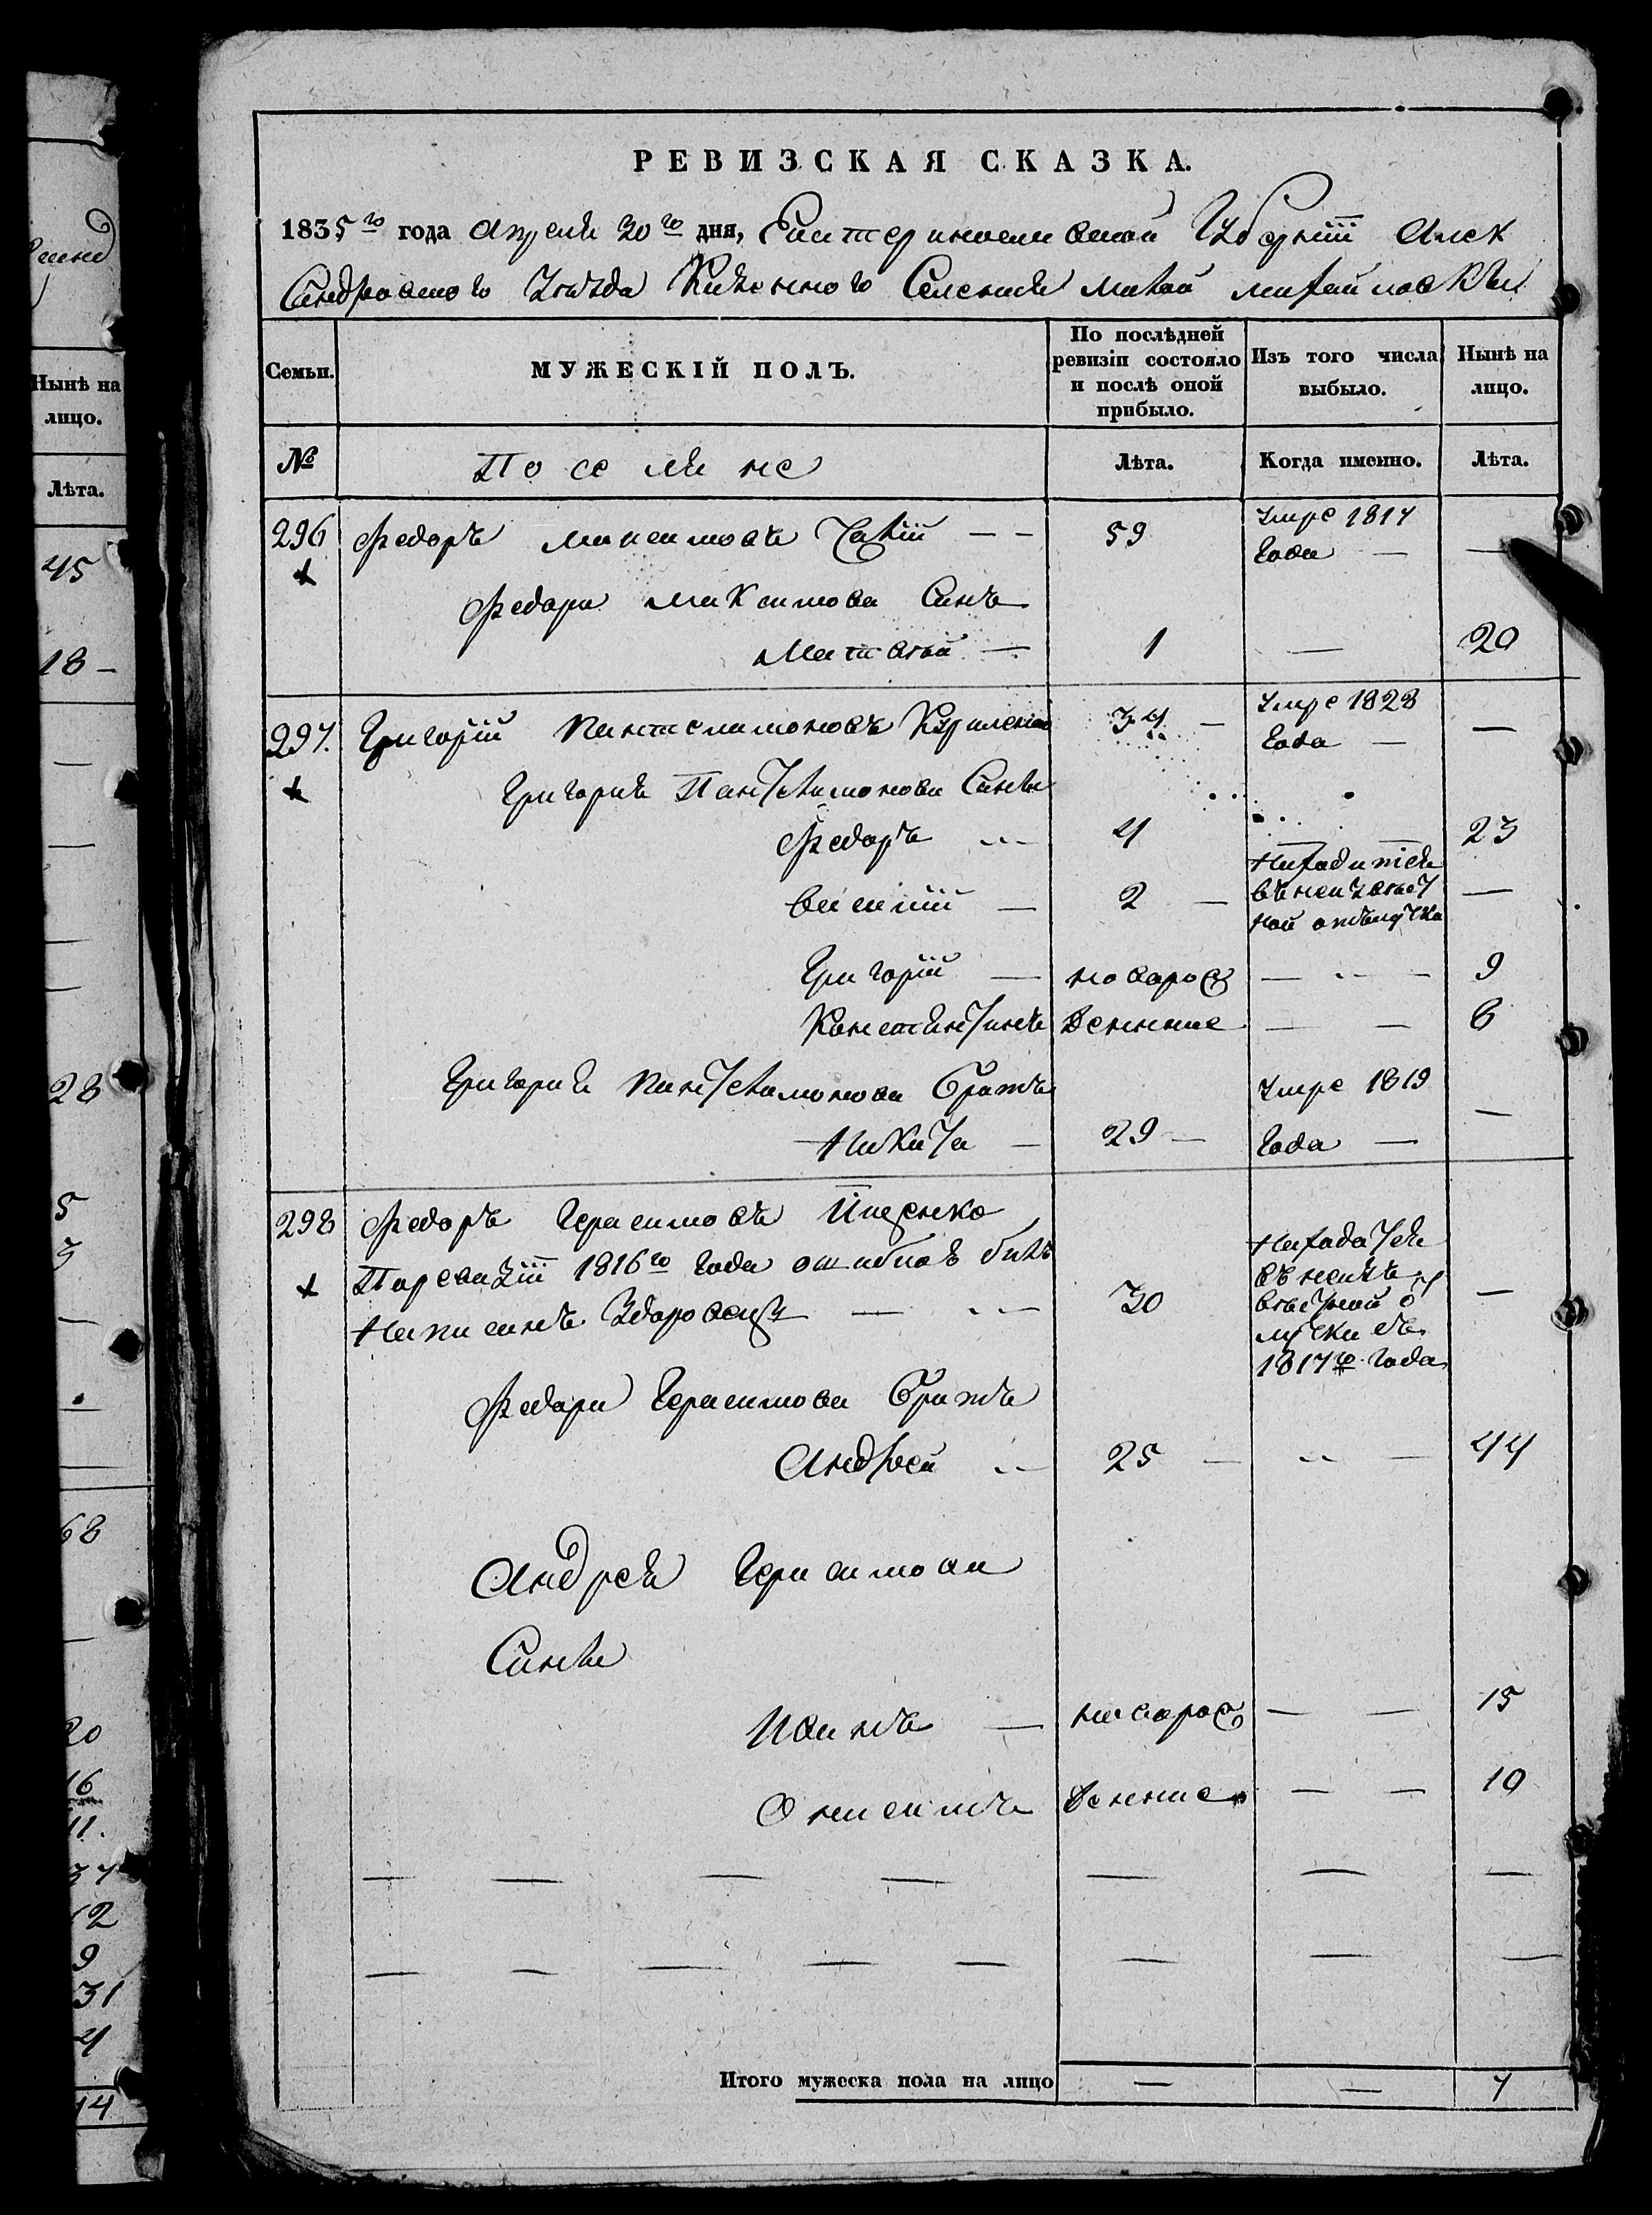 РЕВИЗСКАЯ СКАЗКА.
1835го года Апреля 20го дня, Екатеринославской Губерніи Алек
сандровского Уезда Казенного Селения малой михайловки
Семьи.
МУЖЕСКІЙ ПОЛЪ.
По послѣдней ревизіи состояло и послѣ оной прибыло.
Изъ того числа выбыло.
Нынѣ на лицо.
№
Поселяне
Лѣта.
Когда именно.
Лѣта.
296 Федоръ Максимовъ — — 59 Умре 1817
года — —
Федора Максимова Синъ
Матвей — 1 — 20
297. Григорій Пантелимоновъ Куриленко 34 — Умре 1828
года — —
Григория Пантелимонова Сины
Федоръ 4 — 23
Василий — 2 — Находится
въ неизвест
ной отлучки —
Григорій — новорож — — 9
Константинъ денние — — 6
Григория Пантелимонова Братъ
Никита — 29 — Умре 1819
года — —
298 Федоръ Герасимовъ Ищенко
По ревизіи 1816го года ошибкой билъ
Написанъ — 30 Находится
въ неизъ
вестной от
лучки съ
1817го года —
Федора Герасимова Братъ
Андрей 25 — — 44
Андрея Герасимова
Сины
Иванъ — новорож — — 15
Онисимъ денние — — 10
Итого мужеска пола на лицо — — 7
Нынѣ на лицо.
Лѣта.
45
18 —
28
5
3
68
20
16
11.
37
12
9
31
4
14